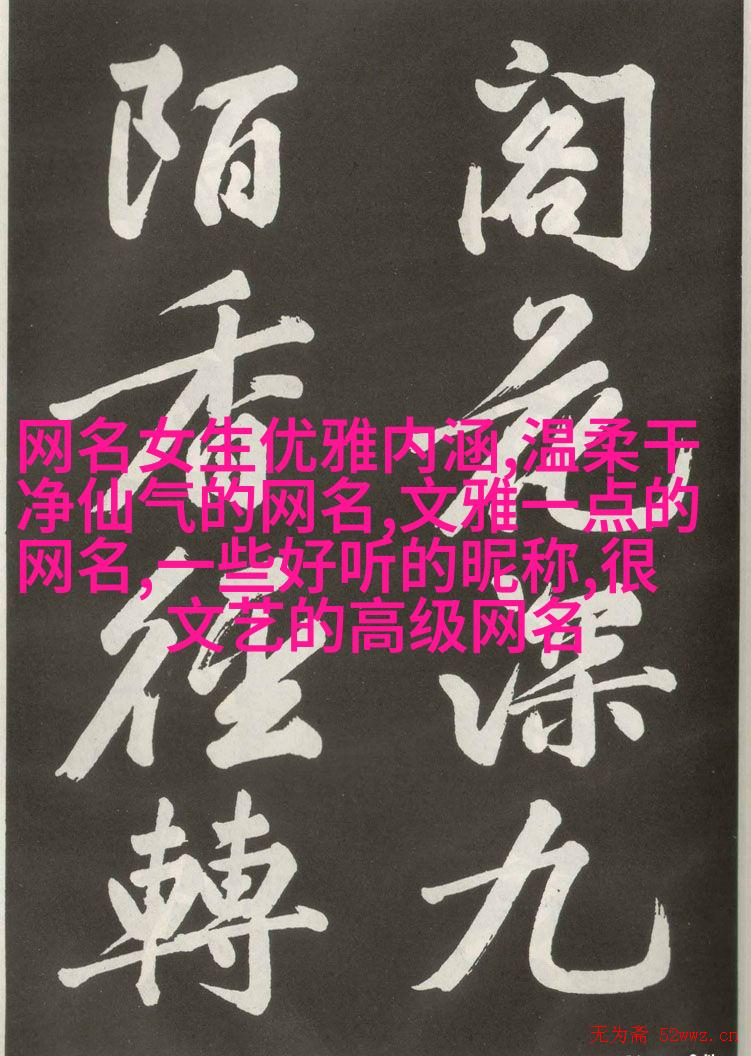 閣花深九
陌香徑轉
网名女生优雅内涵,温柔干
净仙气的网名,文雅一点的
网名,一些好听的昵称,很
文艺的高级网名
无为斋 52wwz.cn